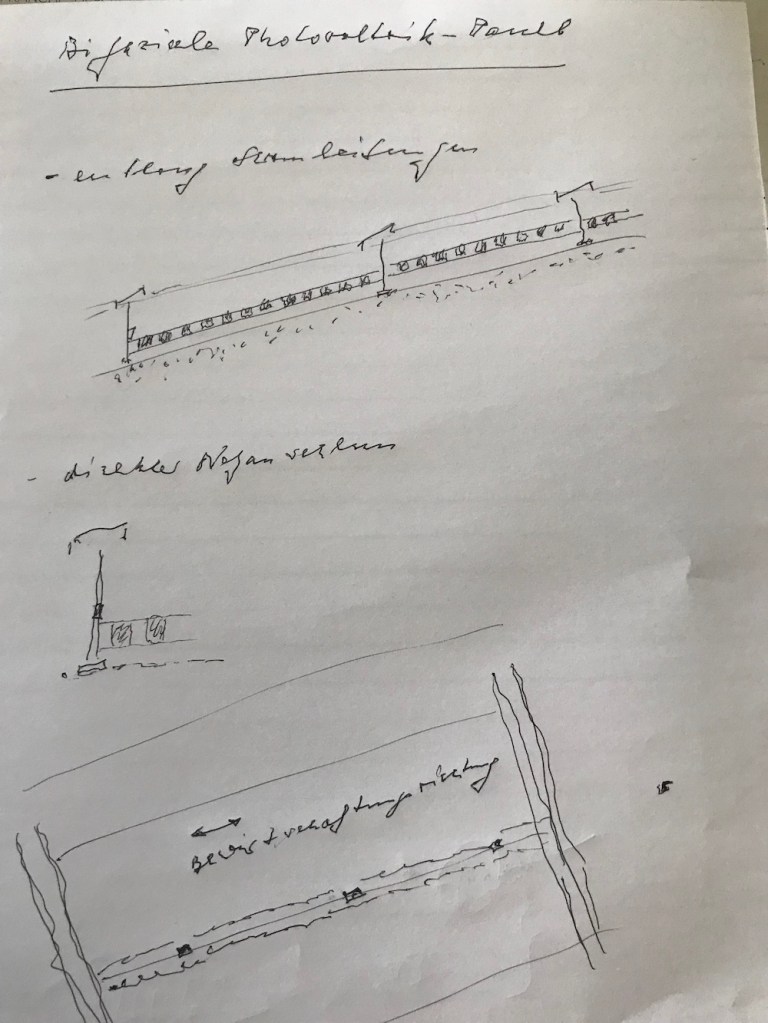 Bifaziale Photovoltaik-Panels
- entlang Stromleitungen
- direkter Netzanschluss
Bewirtschaftungsrichtung